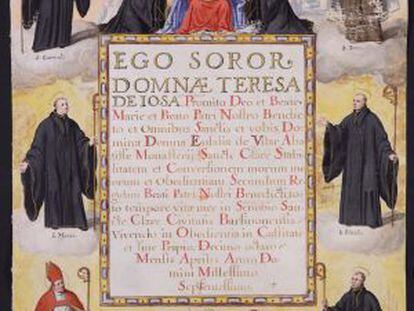 EGO SOROR
DOMNÆ TERESA
DE IOSA Promito Deo et Beate
Marie et Beato Patri Nostro Benedic
to et Omnibus Sanctis et vobis Do
mina Donna Eulalia de Vilar Aba
tisse Monasterij Sanctæ Claræ Stabi
litatem et Conversionem morum me
orum et Obedientiam Secundum Re
gulam Beati Patri Nostri Benedicti to
to tempore vitæ meæ in Servitio San
ctæ Claræ Civitatis Barsinonentis
Vivendo in Obedientia in Castitate
et sine Proprio Decimo octavo
Mensis Aprilis Anno Do
mini Millessimo
Septsentessimo
S. Mauro
S. Placido